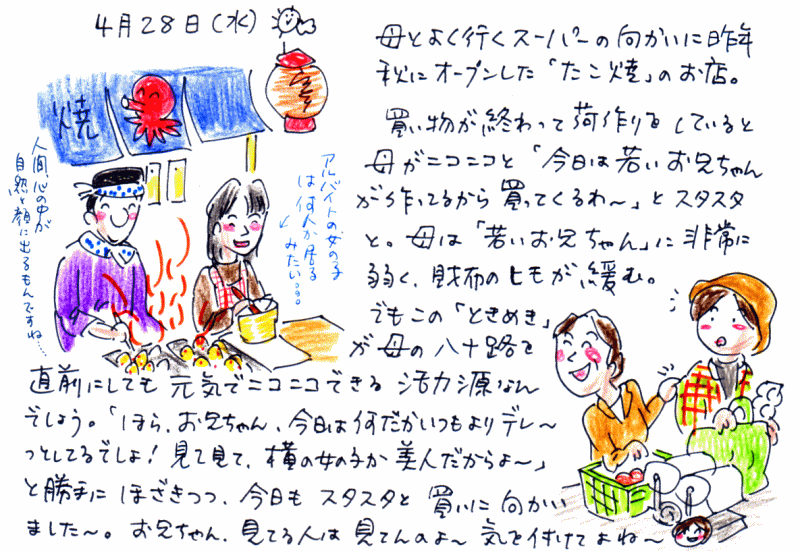 4月28日(水)
母とよく行くスーパーの向かいに昨年
秋にオープンした「たこ焼」のお店。
買い物が終わって荷作りをしていると
母がニコニコと「今日は若いお兄ちゃん
が作ってるから買ってくるわ〜」とスタスタ
と。母は「若いお兄ちゃん」に非常に
弱く、財布のヒモが緩む。
でもこの「ときめき」
が母の八十路を
直前にしても元気でニコニコできる活力源なん
でしょう。「ほら、お兄ちゃん、今日は何だかいつもよりデレ〜
っとしてるでしょ!見て見て、横の女の子が美人だからよ〜」
と勝手にほざきつつ、今日もスタスタと買いに向かい
ました〜。お兄ちゃん、見てる人は見てんのよ〜気を付けてよね〜
焼
アルバイトの女の子
は何人か居る
みたい。。。
人間、心の中が
自然と顔に出るもんですね…